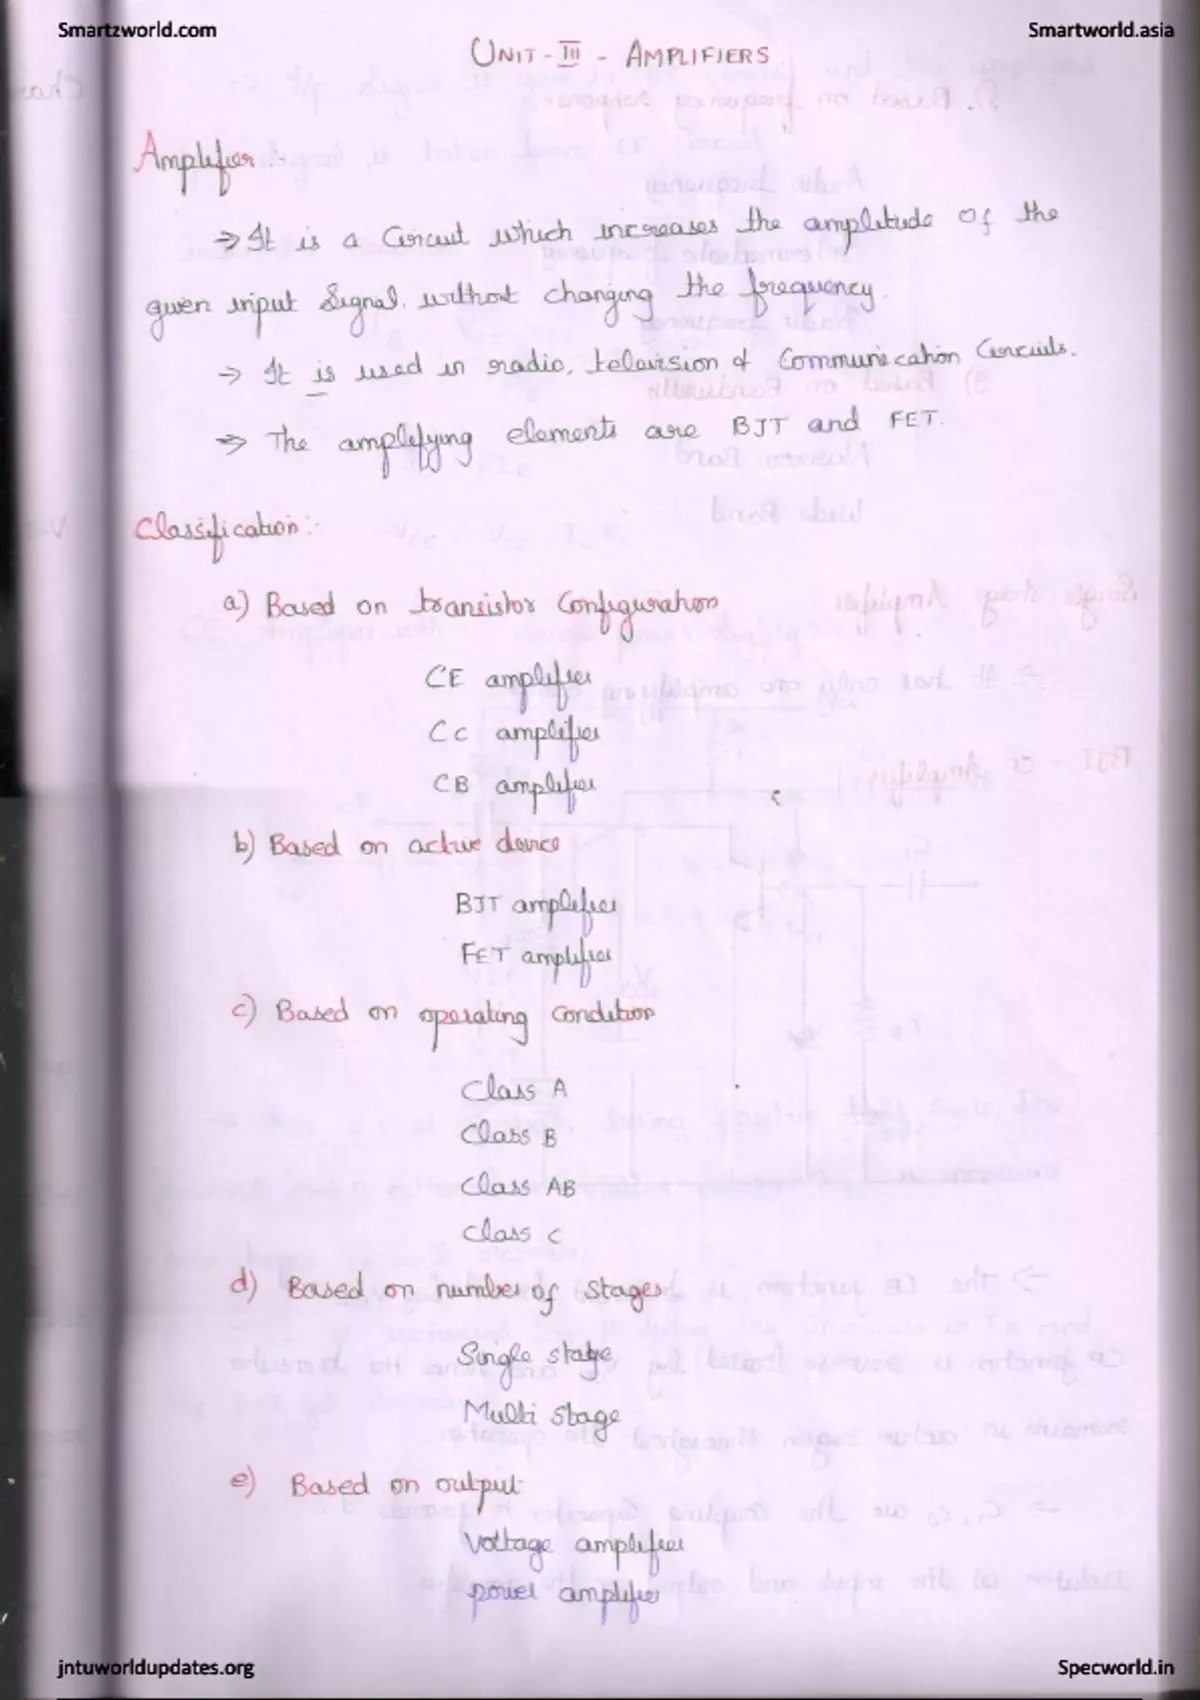 Smartzworld.com
Smartworld.asia
UNIT-III - AMPLIFIERS
Amplifier :-
→ It is a Circuit which increases the amplitude of the
given input Signal. without changing the frequency.
→ It is used in radio, television & Communication Circuits.
→ The amplifying elements are BJT and FET.
Classification :-
a) Based on transistor Configuration
CE amplifier
CC amplifier
CB amplifier
b) Based on active device
BJT amplifier
FET amplifier
c) Based on operating Condition
Class A
Class B
Class AB
Class C
d) Based on number of stages
Single stage
Multi stage
e) Based on output
Voltage amplifier
power amplifier
jntuworldupdates.org
Specworld.in